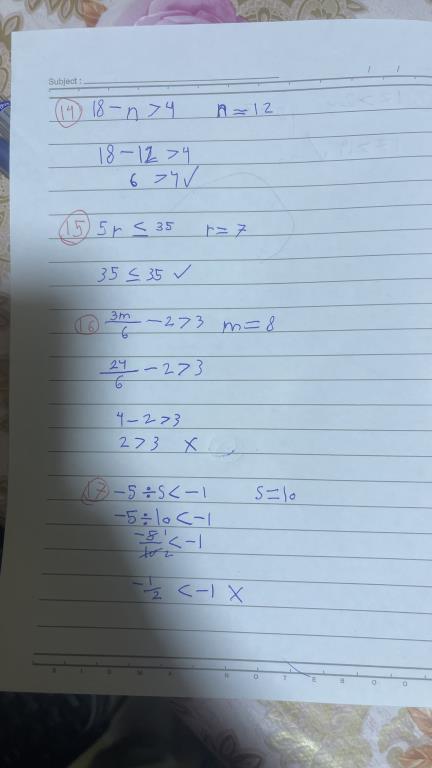 Subject :
/ /
14 18 - n > 4 n = 12
18 - 12 > 4
6 > 4 ✓
15 5r ≤ 35 r = 7
35 ≤ 35 ✓
16 3m/6 - 2 > 3 m = 8
24/6 - 2 > 3
4 - 2 > 3
2 > 3 X
17 -5 ÷ s < -1 s = 10
-5 ÷ 10 < -1
-5 1/10 2 < -1
-1/2 < -1 X